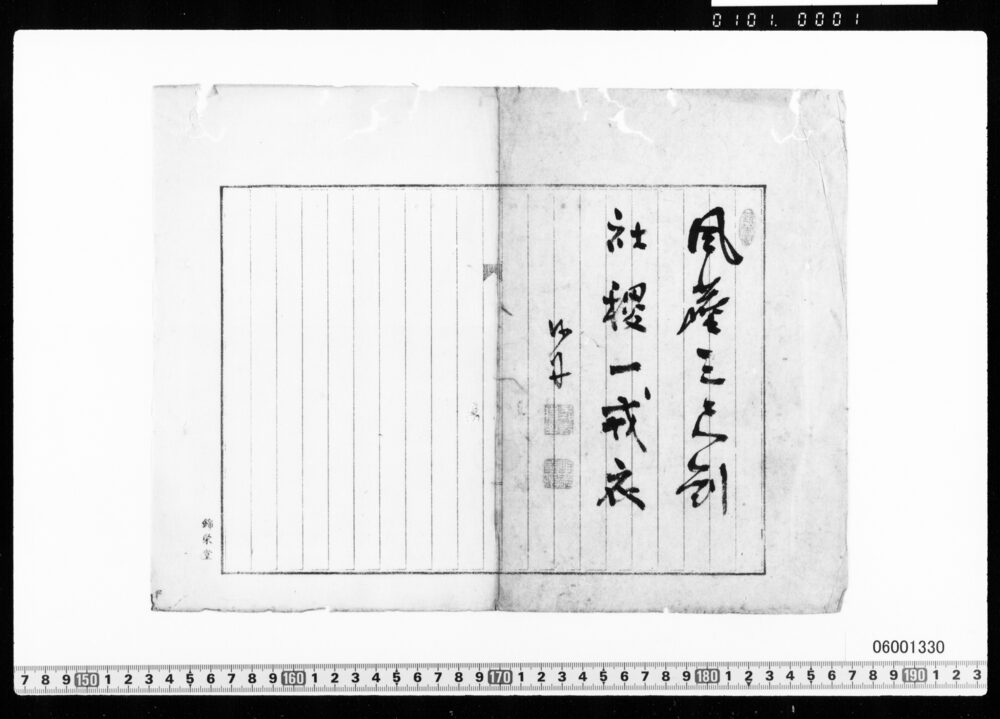 0101. 0001
風塵三尺剣
社稷一戎衣
錦榮堂
06001330
7 8 9 150 1 2 3 4 5 6 7 8 9 160 1 2 3 4 5 6 7 8 9 170 1 2 3 4 5 6 7 8 9 180 1 2 3 4 5 6 7 8 9 190 1 2 3